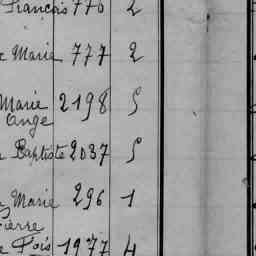 François 776 2
Marie 777 2
Marie 2198 5
Ange
Baptiste 2037 5
Marie 296 1
Pierre
Fois 1977 4